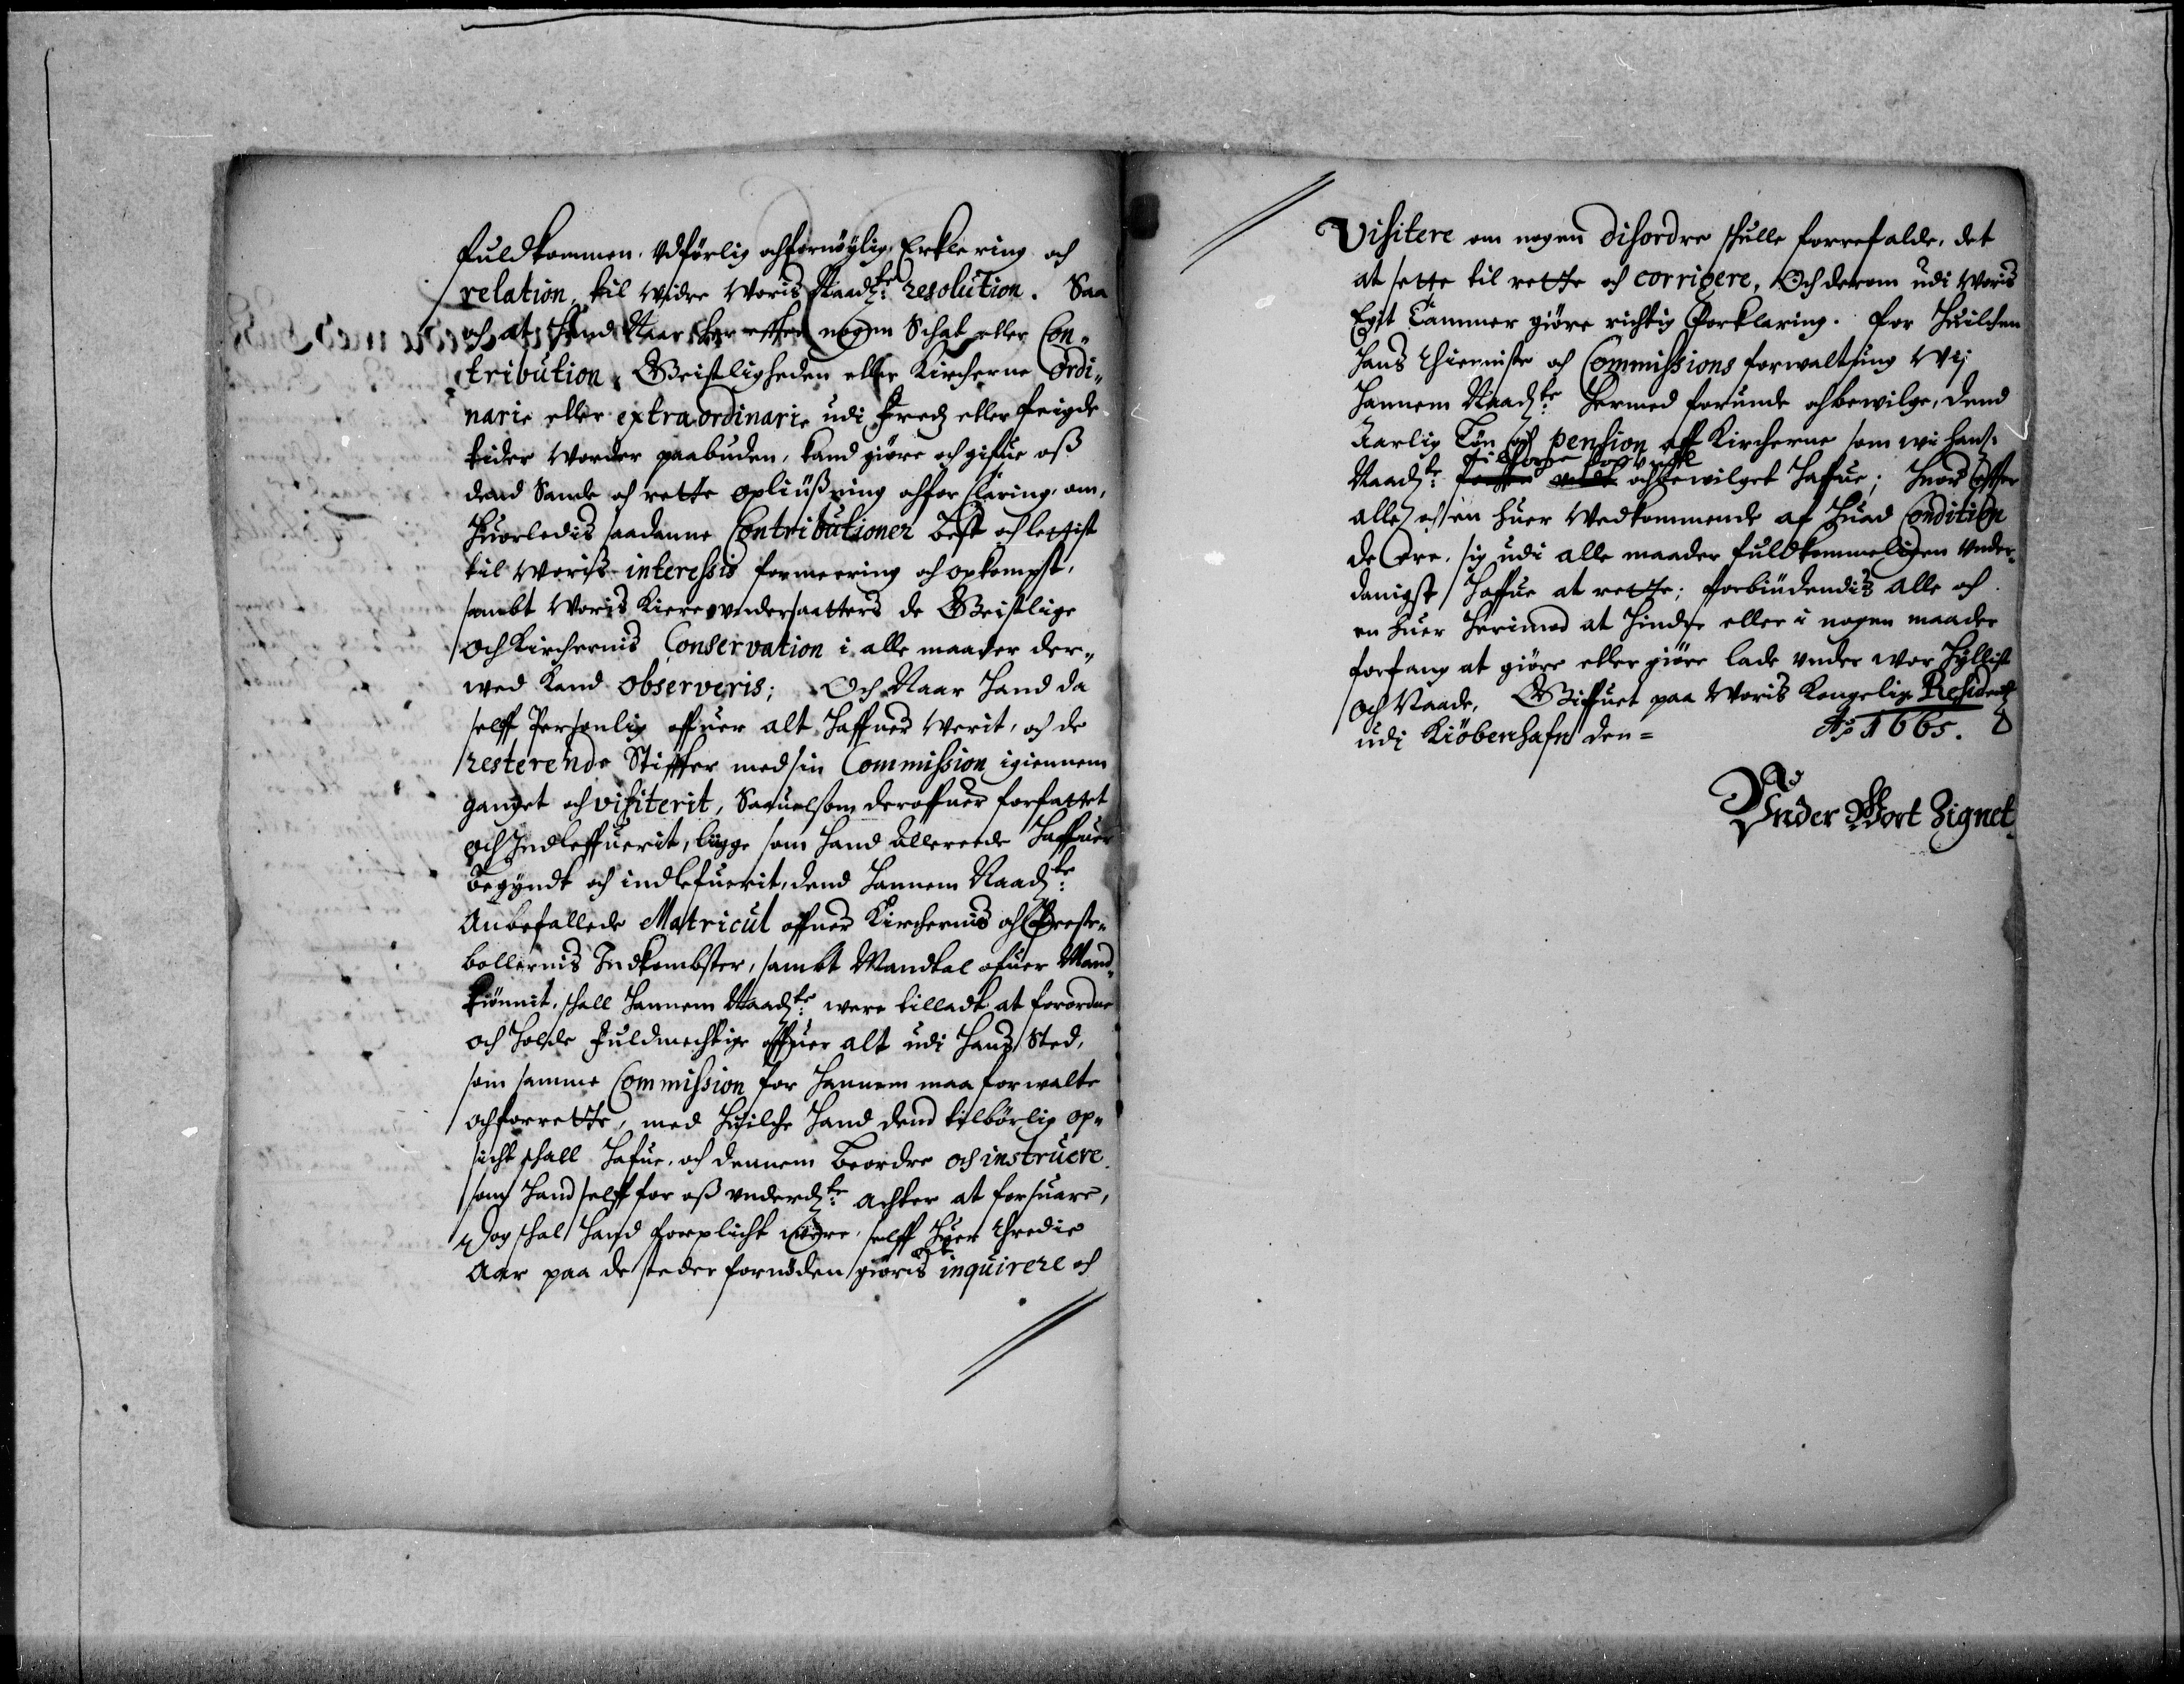 fuldkommen, Udförlig och fornöÿlig Erklering och
relation, til widre Woris Naadste resolution. Saa
och at Hand Naar her effter nogen Schat eller Con-
tribution, Geistligheden eller Kircherne Ordi-
narie eller extraordinarie udi Freds eller feigde
tider worder paabuden, kand giöre och gifue oß
dend Sande och rette opliüßning och forklaring, om,
Huorledis saadanne Contributioner best och lettist
til Woriß interessis formeering och opkompst,
sambt Woris Kiere undersaatters de Geistlige
och Kirchernis Conservation i alle maader der-
wed kand observeris; Och Naar Hand da
selff Personlig offuer alt Haffuer werit, och de
resterende Stiffter med sin Commission igiennem
ganget och visiterit, Saauelsom deroffuer forfattet
och Indleffuerit, ligge som Hand allereede Haffuer
begyndt och indlefuerit, dend Hannem Naadste
Anbefallede Matricul offuer Kirchernis och Preste-
bollernis Indkombster, sambt Mandtal ofuer Mand-
kiönnit, schall Hannem Naadste were tilladt at forordne
och Holde Fuldmechtige offuer alt udi Hans Sted,
som samme Commission for Hannem maa forwalte
och forrette, med Huilche Hand dend tilbörlig op-
sicht schall Hafue, och dennem beordre och instruere
som Hand selff for oß underdste achter at forsuare,
Dog schal Hand forplicht were, selff Huer thredie
Aar paa de steder fornöden giöris at inquirere och
Visitere om nogen disordre schulle forrefalde, det
at sette til rette och corrigere, Och derom udi Woris
Egit Cammer giöre richtig Forklaring. For Huilchen
Hans thienniste och Commissions forwaltning Wij
Hannem Naadste Hermed forunde och bewilge, dend
Aarlig Lön och pension aff Kircherne som wi Hans
tilforne
Naadste och bewilget Haffue; Huor effter
alle och en Huer Wedkommende af Huad Condition
de ere, sig udi alle maader fuldkommeligen Under-
danigst Haffue at rette; Forbiudendis alle och
en Huer Herimod at Hindre eller i nogen maader
forfang at giöre eller giöre lade under wor Hyllist
och Naade, Giffuet paa Woris Kongelige Residentz
udi Kiöbenhafn den = Ao 1665.
Under Wort Zignet